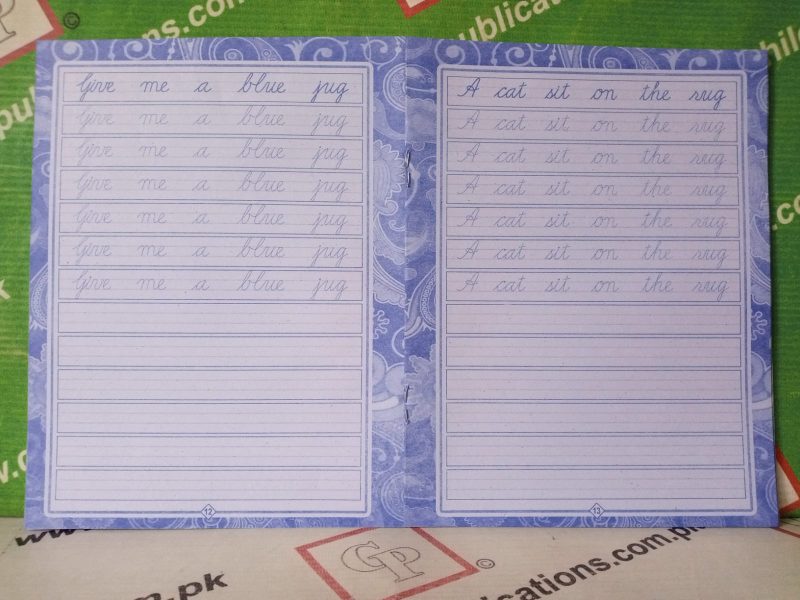 ©
publications.com
philo
Give me a blue jug
Give me a blue jug
Give me a blue jug
Give me a blue jug
Give me a blue jug
Give me a blue jug
Give me a blue jug
12
A cat sit on the rug
A cat sit on the rug
A cat sit on the rug
A cat sit on the rug
A cat sit on the rug
A cat sit on the rug
A cat sit on the rug
13
GP
©
om.pk
ications.com.pk